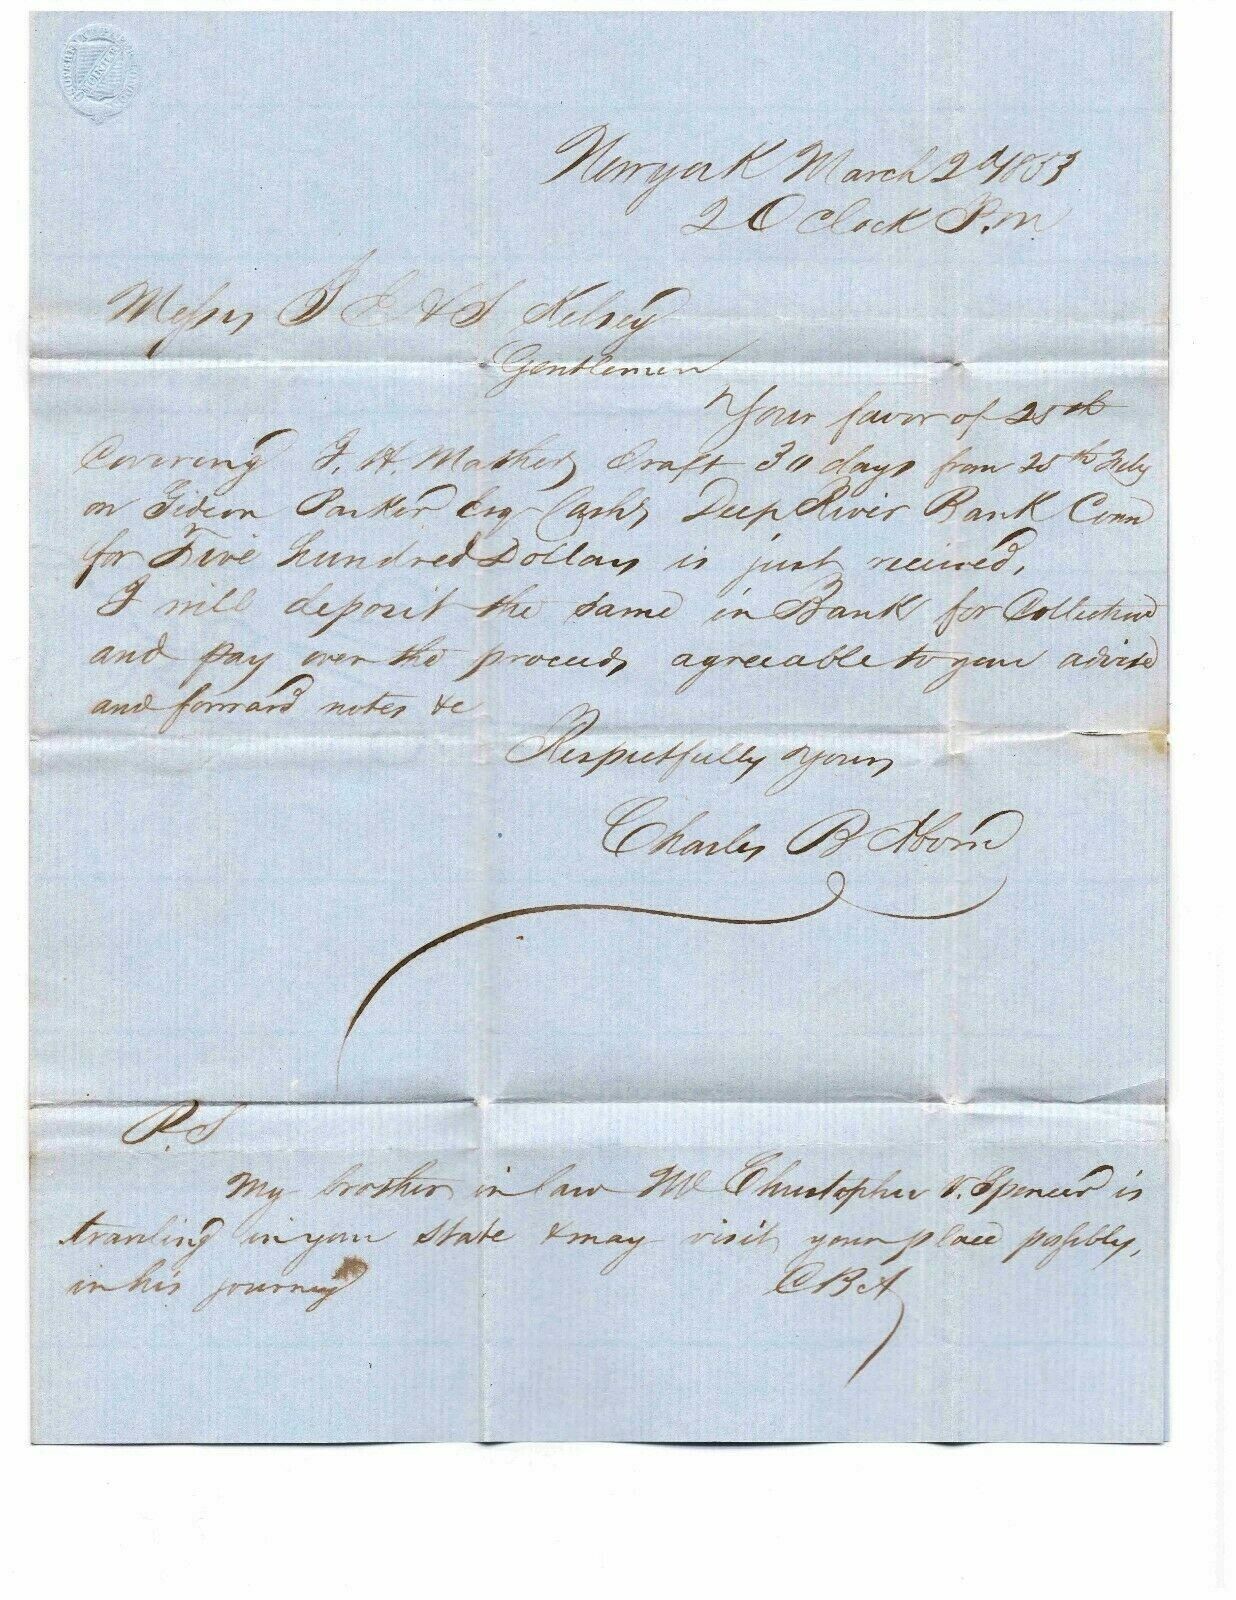 New york March 2d/1853
2 O Clock P.M
Messrs J E & S Kelsey
Gentlemen
Your favor of 25th
Covering J. H. Mathers Draft 30 days from 25th Feby
on Gideon Parker Esq Cashr Deep River Bank Conn
for Five hundred Dollars is just received,
I will deposit the same in Bank for Collection
and pay over the proceeds agreeable to your advise
and forward notes &c
Respectfully yours
Charles B Aborn
P.S
My brother in law Mr Christopher V. Spencer is
travling in your state & may visit your place possibly,
in his journey
CBA